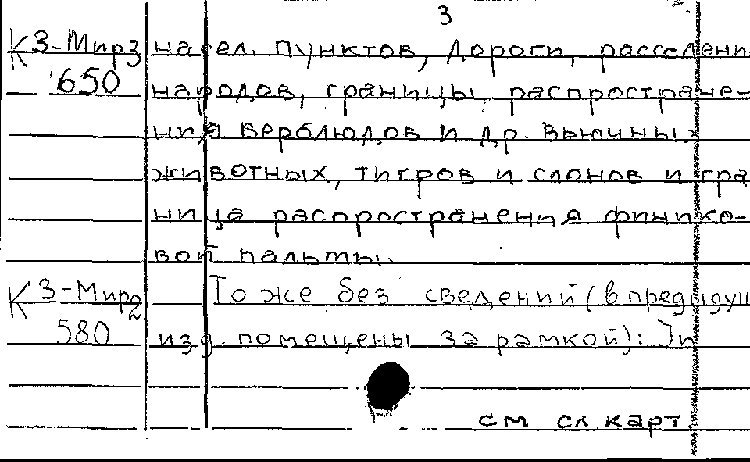 3
К 3-Мир3 насел. пунктов, дороги, расселени
650 народов, границы распростране-
ния верблюдов и др. вьючных
животных, тигров и слонов и гра
ница распространения финико-
вой пальмы.
К 3-Мир2 То же без сведений (в предыдущ
580 изд. помещены за рамкой): Jn
см сл. карт.